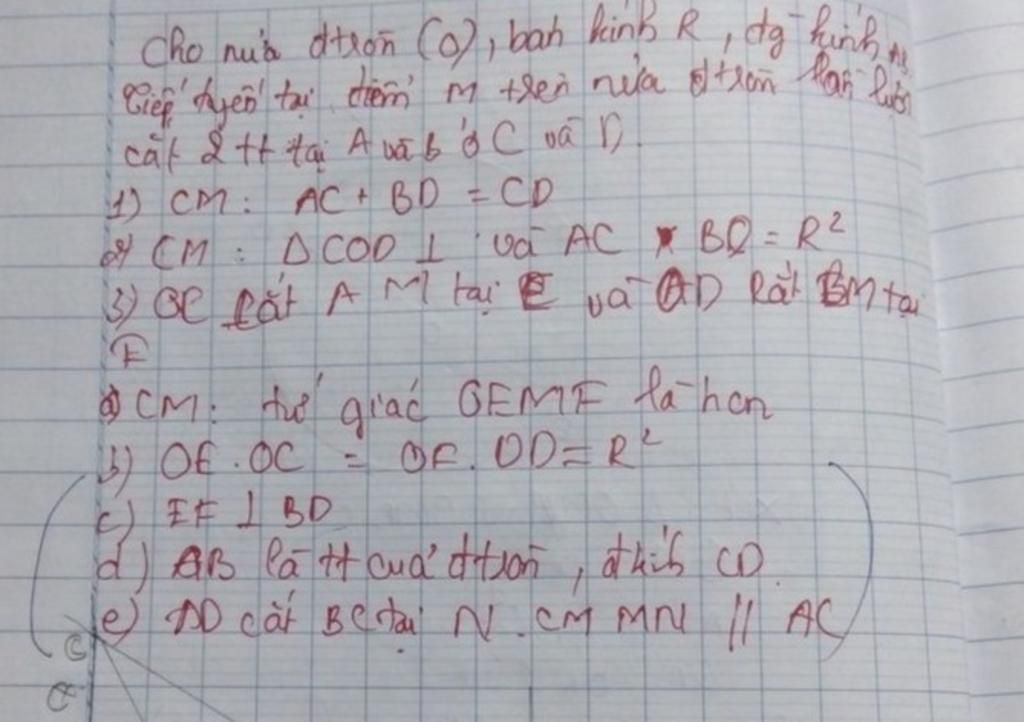 Cho nửa đtròn (O), bán kính R, đg kính AB
tiếp tuyến tại điểm M trên nửa đtròn lần lượt
cắt 2 tt tại A và B ở C và D.
1) CM: AC + BD = CD
2) CM: ΔCOD ⊥ và AC × BD = R²
3) OC cắt A M tại E và OD cắt BM tại
F
a) CM: tứ giác OEMF là hcn
b) OE . OC = OF . OD = R²
c) EF ⊥ BD
d) AB là tt của đtròn, đkính CD.
e) AD cắt BC tại N. CM MN // AC
C